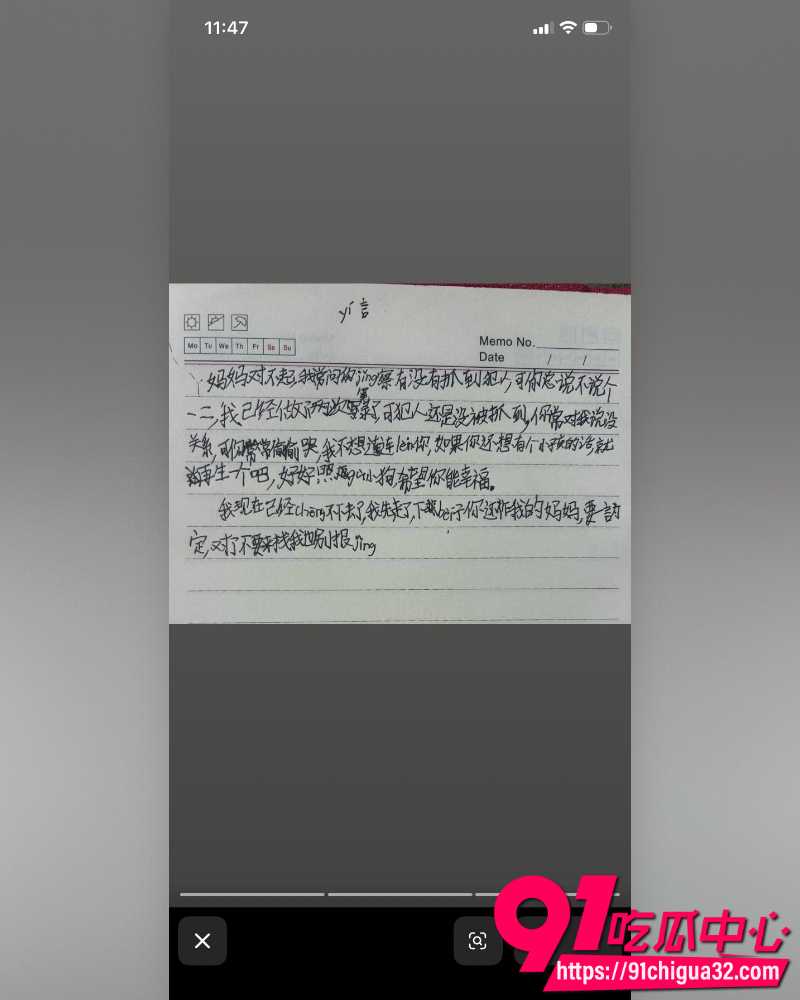 11:47
yí言
Mo Tu We Th Fr Sa Su
Memo No.
Date / /
妈妈对不起,我常问你jing察有没有抓到犯人,可你总说不说个
一二,我已经做了两次笔录了,可犯人还是没被抓到,你常对我说没
关系,可你常常偷偷哭,我不想连lei你,如果你还想有个小孩的话就
再生一个吧,好好照gu小狗希望你能幸福。
我现在已经cheng不下去了,我先走了,下bei子你还作我的妈妈,要説
定,对了不要来找我也别报jing
91吃瓜中心
https://91chigua32.com